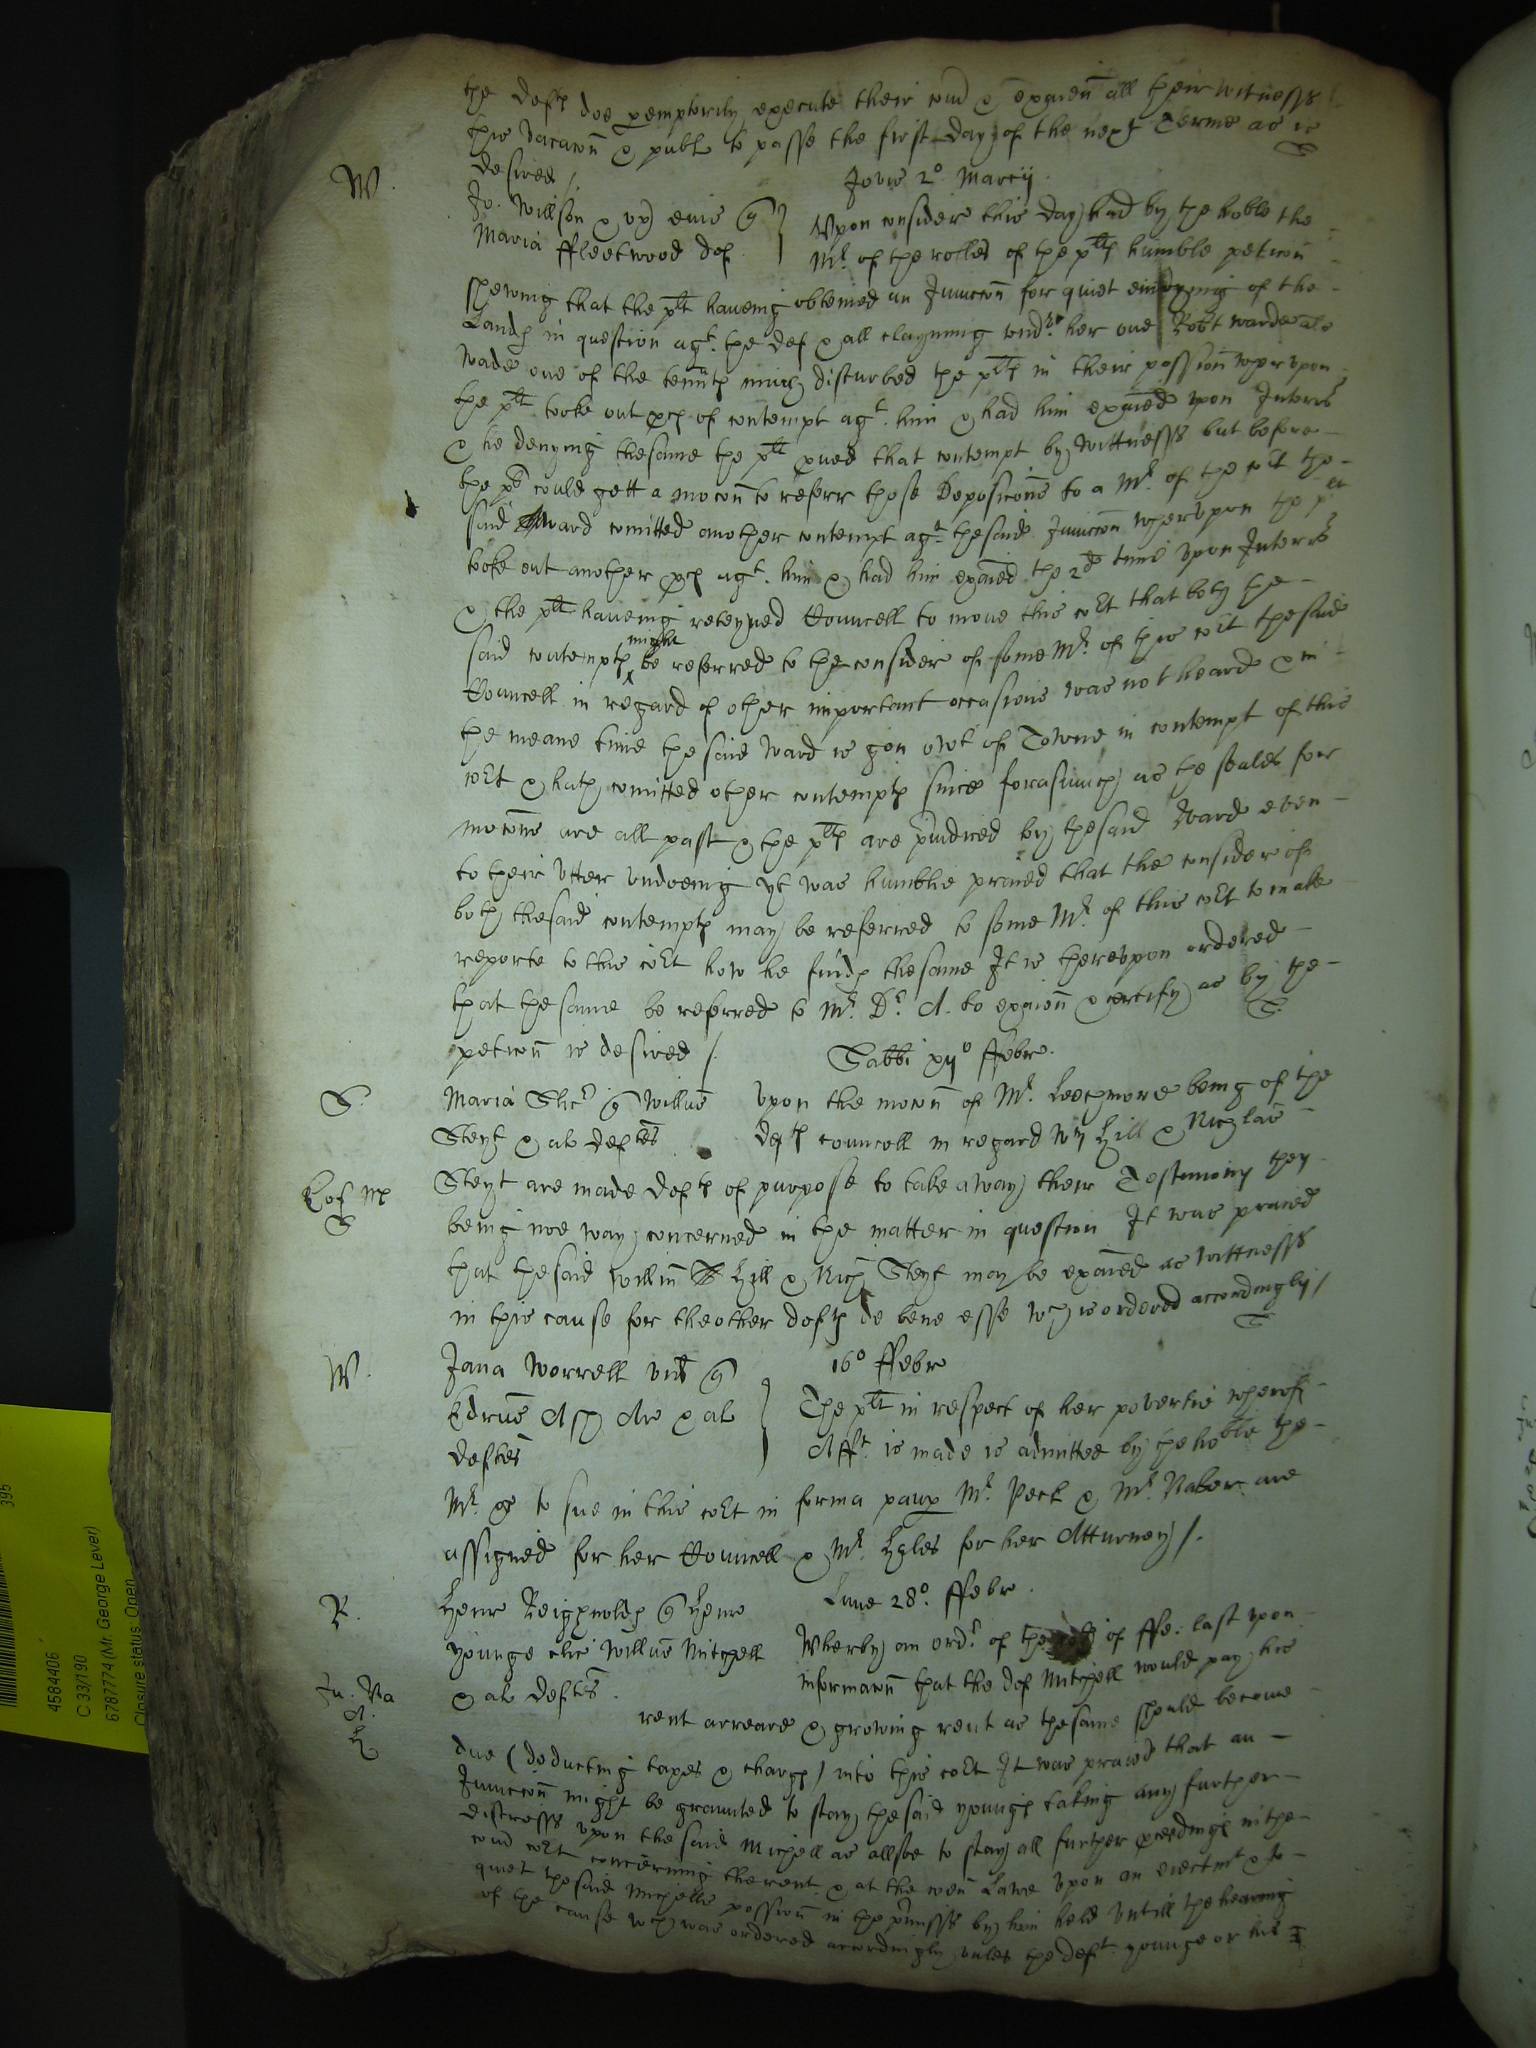 the defts doe peremptorily execute their comd & examen all their witnesses
this vacacon & publ to passe the first day of the next Terme as is
desired /
Jovis 2o Marcij
W.
Jo. Willson & ux eius
Maria ffleetwood def.
Upon consider this day had by the hoble the
Mr of the rolles of the plts humble peticon
shewing that the plt haueing obteined an Iniuccon for quiet enioyeing of the
Lands in question agt. the def & all clayming undr her one Robt Warde als
Wade one of the tennts much disturbed the plts in their possion wherupon
the plt tooke out pces of contempt agt. him & had him examed upon Interrs
& he denying thesame the plt proued that contempt by wittnesses but before
the plt could gett a mocon to referr those Deposicons to a Mr of the cort the
said Ward comitted another contempt agt. thesaid Iniuccon wherupon the plt
tooke out another pces agt. him & had him examed the 2d time upon Interrs
& the plt haueing reteyned Councell to moue this cort that both the
said contempts might be referred to the consider of some Mr of this cort thesaid
Councell in regard of other important occasions was not heard & in
the meane time the said Ward is gon owt of Towne in contempt of this
cort & hath comitted other contempts since forasmuch as the seales for
mocons are all past & the plts are preiudiced by thesaid Ward even
to their utter undoeing yt was humblie praied that the consider of
both thesaid contempts may be referred to some Mr of this cort to make
reporte to this cort how he finds thesame It is thereupon ordered
that thesame be referred to Mr. Dr. A. to examen & certify as by the
peticon is desired /
Sabbi xijo ffebr.
S.
Maria Willus
Steyt & als deftes
upon the mocon of Mr. Leechmore being of the
defts councell in regard Wm Hill & Nicholas
Steyt are made defts of purpose to take away their Testimony they
being noe way concerned in the matter in question It was praied
that thesaid Willm Hill & Nich Steyt may be examed as wittnesses
in this cause for theother defts de bene esse wch is ordered accordingly /
W.
Jana Worrell vid
16o ffebr
Edrus & als
deftes
The plt in respect of her povertie wherof
Afft. is made is admitted by the hoble the
Mr. &c to sue in this cort in forma paup Mr. Peck & Mr. Baber are
assigned for her Councell & Mr. Hyles for her Atturney /.
R.
Henr Reighnolds Henr
Lune 28o. ffebr.
younge Willus Mitchell
& als deftes.
Wherby an ordr. of the of ffe: last upon
informacon that the def Mitchell would pay his
rent arreare & growing rent as thesame should become
due (deducting taxes & charges) into this cort It was praied that an
Iniuccon might be graunted to stay thesaid younge taking any further
distresse upon the said Michell as allsoe to stay all further pceedings in the
cort concerning the rent & at the comen Lawe upon an eiectmt & to
quiet thesaid Michells possion in the prmisses by him held untill the heareing
of the cause wch was ordered accordingly unles the deft. younge or his
4584406
C 33/190
6787774 (Mr. George Lever)
Closure status: Open